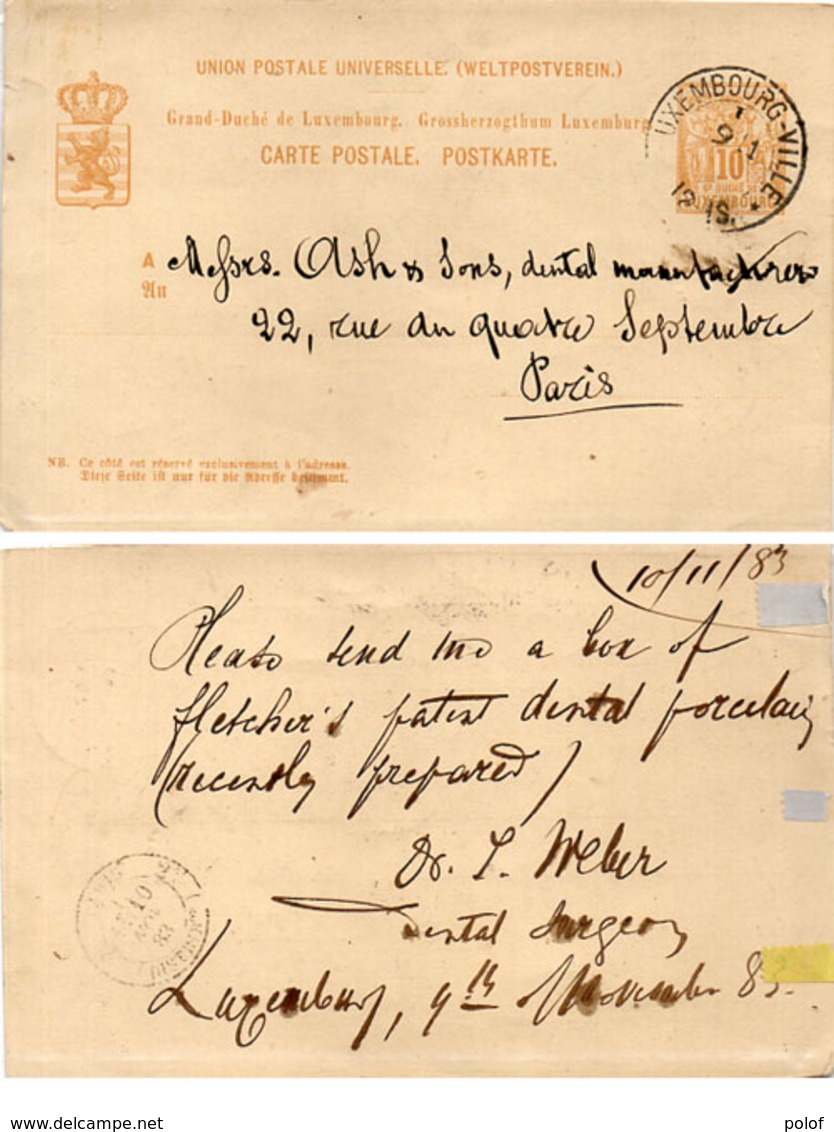 UNION POSTALE UNIVERSELLE. (WELTPOSTVEREIN.)
Grand-Duché de Luxembourg. Grossherzogthum Luxemburg
CARTE POSTALE. POSTKARTE.
LUXEMBOURG-VILLE
9 11
10
Gd DUCHÉ DE
LUXEMBOURG
A Messrs. Ash & Sons, dental manufacturers
An
22, rue du quatre Septembre
Paris
NB. Ce côté est réservé exclusivement à l'adresse.
Diese Seite ist nur für die Adresse bestimmt.
10/11/83
Please send me a box of
fletcher's patent dental porcelain
(recently prepared)
Dr. L. Weber
Dental Surgeon
Luxemburg, 9th November 83.
10
83
polof